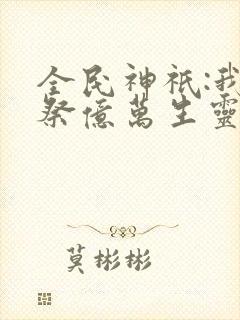 全民神祇:我
祭億萬生靈
莫彬彬